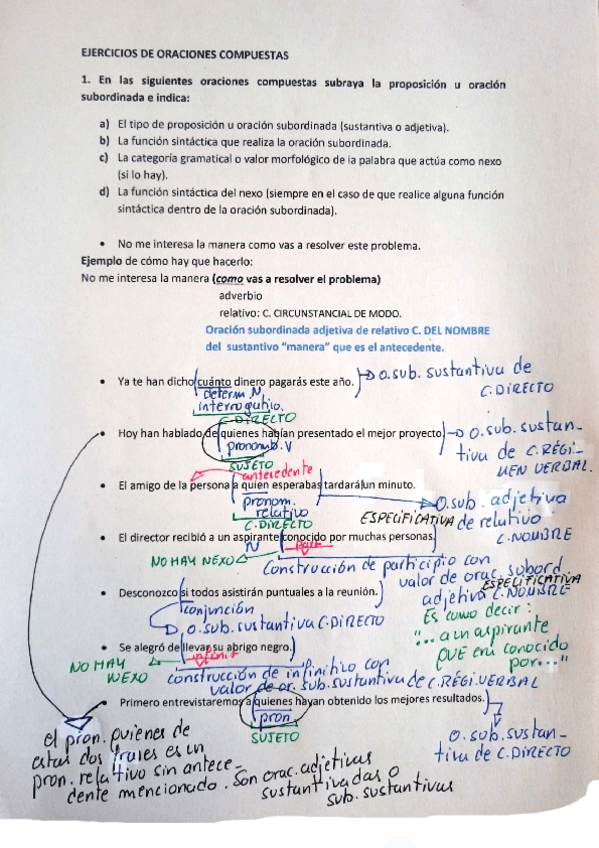 EJERCICIOS DE ORACIONES COMPUESTAS
1. En las siguientes oraciones compuestas subraya la proposición u oración
subordinada e indica:
a) El tipo de proposición u oración subordinada (sustantiva o adjetiva).
b) La función sintáctica que realiza la oración subordinada.
c) La categoría gramatical o valor morfológico de la palabra que actúa como nexo
(si lo hay).
d) La función sintáctica del nexo (siempre en el caso de que realice alguna función
sintáctica dentro de la oración subordinada).
• No me interesa la manera como vas a resolver este problema.
Ejemplo de cómo hay que hacerlo:
No me interesa la manera (como vas a resolver el problema)
adverbio
relativo: C. CIRCUNSTANCIAL DE MODO.
Oración subordinada adjetiva de relativo C. DEL NOMBRE
del sustantivo "manera" que es el antecedente.
• Ya te han dicho cuánto dinero pagarás este año. O. sub. sustantiva de
C. DIRECTO
determ. N
interrogativo.
C. DIRECTO
• Hoy han hablado de quienes habían presentado el mejor proyecto. O. sub. sustan-
tiva de C. RÉGI-
MEN VERBAL.
pronom. V
SUJETO
antecedente
• El amigo de la persona a quien esperabas tardará un minuto.
pronom.
relativo
C. DIRECTO
O. sub. adjetiva
ESPECIFICATIVA de relativo
C. NOMBRE
• El director recibió a un aspirante conocido por muchas personas.
N part
NO HAY NEXO
Construcción de participio con
valor de orac. subord
ESPECIFICATIVA
adjetiva C. NOMBRE
• Desconozco si todos asistirán puntuales a la reunión.
conjunción
O. sub. sustantiva C. DIRECTO
Es como decir:
"... a un aspirante
QUE era conocido
por..."
• Se alegró de llevar su abrigo negro.
infinit
NO HAY
NEXO
construcción de infinitivo con
valor de or. sub. sustantiva de C. RÉGI. VERBAL
• Primero entrevistaremos a quienes hayan obtenido los mejores resultados.
pron
SUJETO
O. sub. sustan-
tiva de C. DIRECTO
el pron. quienes de
estas dos frases es un
pron. relativo sin antece-
dente mencionado. Son orac. adjetivas
sustantivadas o
sub. sustantivas